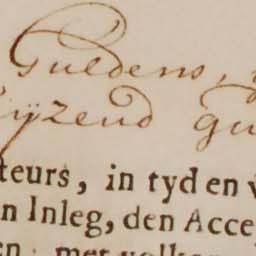 Guldens,
ijzend gu
teurs, in tyd en v
n Inleg, den Acce
en met volko